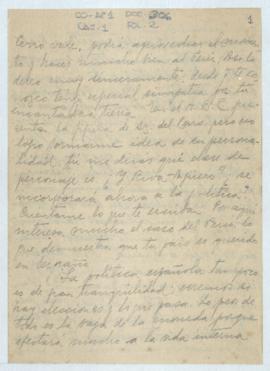 CO-Nº1 DOC 306
CAJ.1 FOL. 2
1
Cerro vale, podrá aprovechar el momen
to y hacer mucho bien al Perú. Os lo
deseo muy sinceramente; desde q te co
nozco tengo especial simpatía por tu
encantadora tierra. En el A.B.C. pre
senta la figura de S. del Cerro, pero no
logro formarme idea de su persona
lidad; tú me dirás qué clase de
personaje es. ¿Y Riva-Agüero?, ¿se
incorporará ahora a la política?
Cuéntame lo que te escriban. Por aquí
interesa mucho el caso del Perú, lo
que demuestra que tu país es querido
en España.
La política española tampoco
es de gran tranquilidad; veremos si
hay elecciones y lo que pasa. Lo peor de
todo es la baja de la moneda, porque
afectará mucho a la vida interna